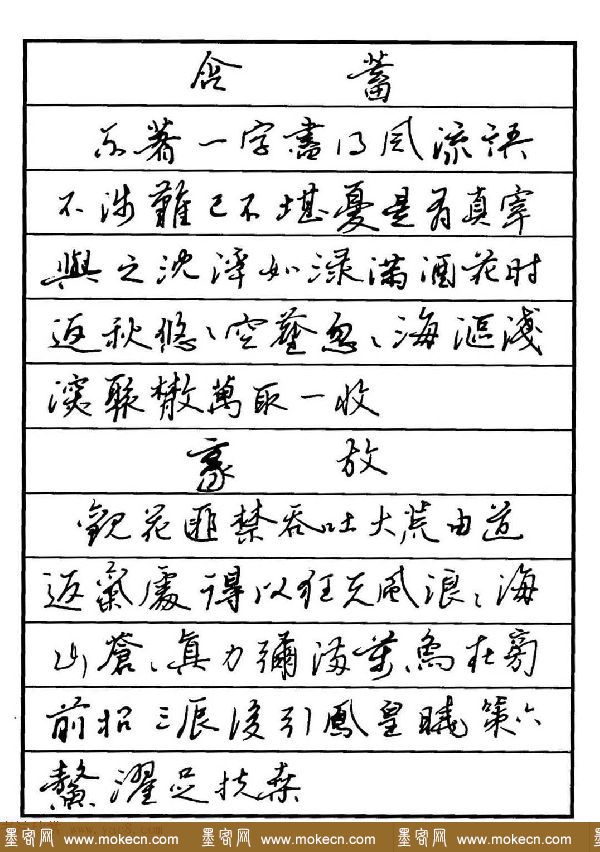 含 蓄
不著一字盡得風流語
不涉難已不堪憂是有真宰
與之沈浮如渌滿酒花时
返秋悠〻空塵忽〻海漚淺
深聚散萬取一收
豪 放
觀花匪禁吞吐大荒由道
返氣處得以狂天風浪〻海
山蒼〻真力彌滿萬象在旁
前招三辰後引鳳皇曉策六
鼇濯足扶桑
墨客网 www.mokecn.com 墨客网 www.mokecn.com 墨客网 www.mokecn.com